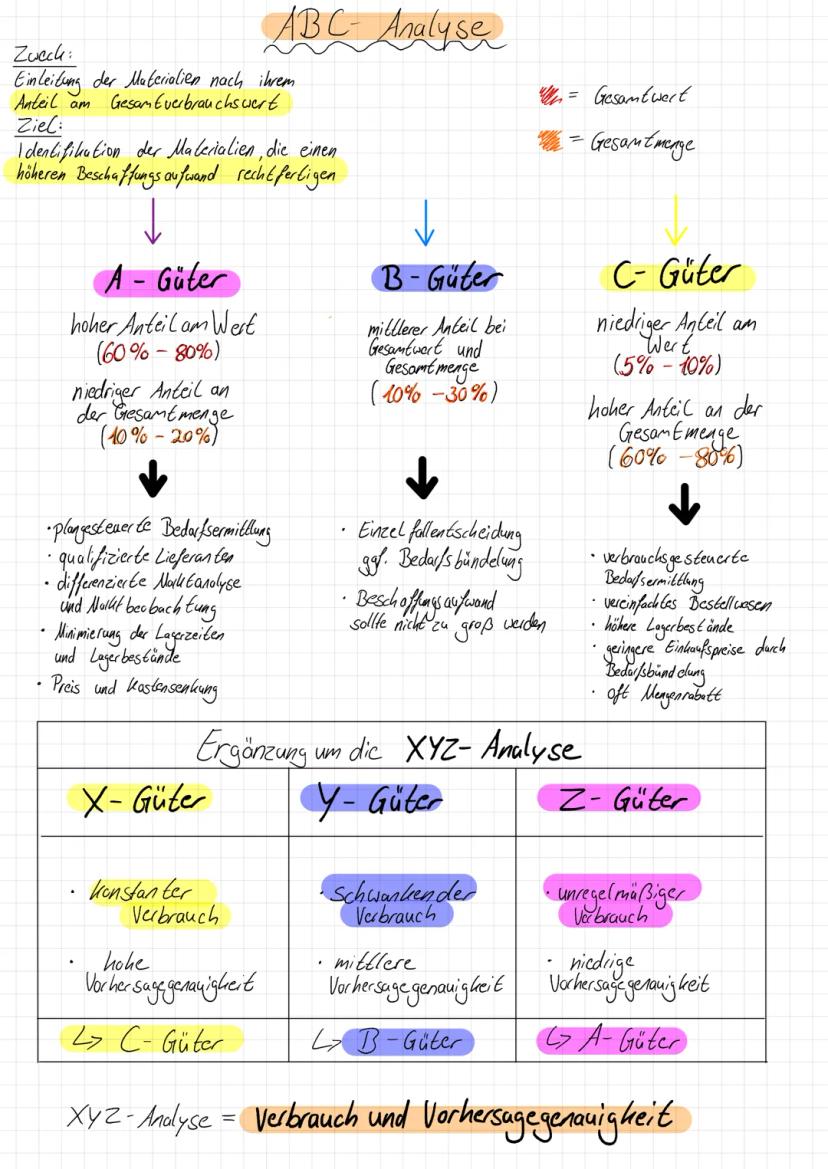 ABC- Analyse
Zweck:
Einleitung der Materialien nach ihrem
Anteil am Gesamtverbrauchswert
Ziel:
Identifikation der Materialien, die einen
höheren Beschaffungsaufwand rechtfertigen
= Gesamtwert
= Gesamtmenge
A - Güter
hoher Anteil am Wert
(60% - 80%)
niedriger Anteil an
der Gesamtmenge
(10% - 20%)
· plangesteuerte Bedarfsermittlung
· qualifizierte Lieferanten
· differenzierte Marktanalyse
und Marktbeobachtung
· Minimierung der Lagerzeiten
und Lagerbestände
· Preis und Kostensenkung
B - Güter
mittlerer Anteil bei
Gesamtwert und
Gesamtmenge
(10% - 30%)
· Einzelfallentscheidung
ggf. Bedarfsbündelung
· Beschaffungsaufwand
sollte nicht zu groß werden
C- Güter
niedriger Anteil am
Wert
(5% - 10%)
hoher Anteil an der
Gesamtmenge
(60% - 80%)
· verbrauchsgesteuerte
Bedarfsermittlung
· vereinfachtes Bestellwesen
· höhere Lagerbestände
· geringere Einkaufspreise durch
Bedarfsbündelung
· oft Mengenrabatt
Ergänzung um die XYZ- Analyse
X- Güter
· konstanter
Verbrauch
· hohe
Vorhersagegenauigkeit
↳ C- Güter
Y- Güter
· schwankender
Verbrauch
· mittlere
Vorhersagegenauigkeit
↳ B - Güter
Z- Güter
· unregelmäßiger
Verbrauch
· niedrige
Vorhersagegenauigkeit
↳ A- Güter
XYZ- Analyse = Verbrauch und Vorhersagegenauigkeit